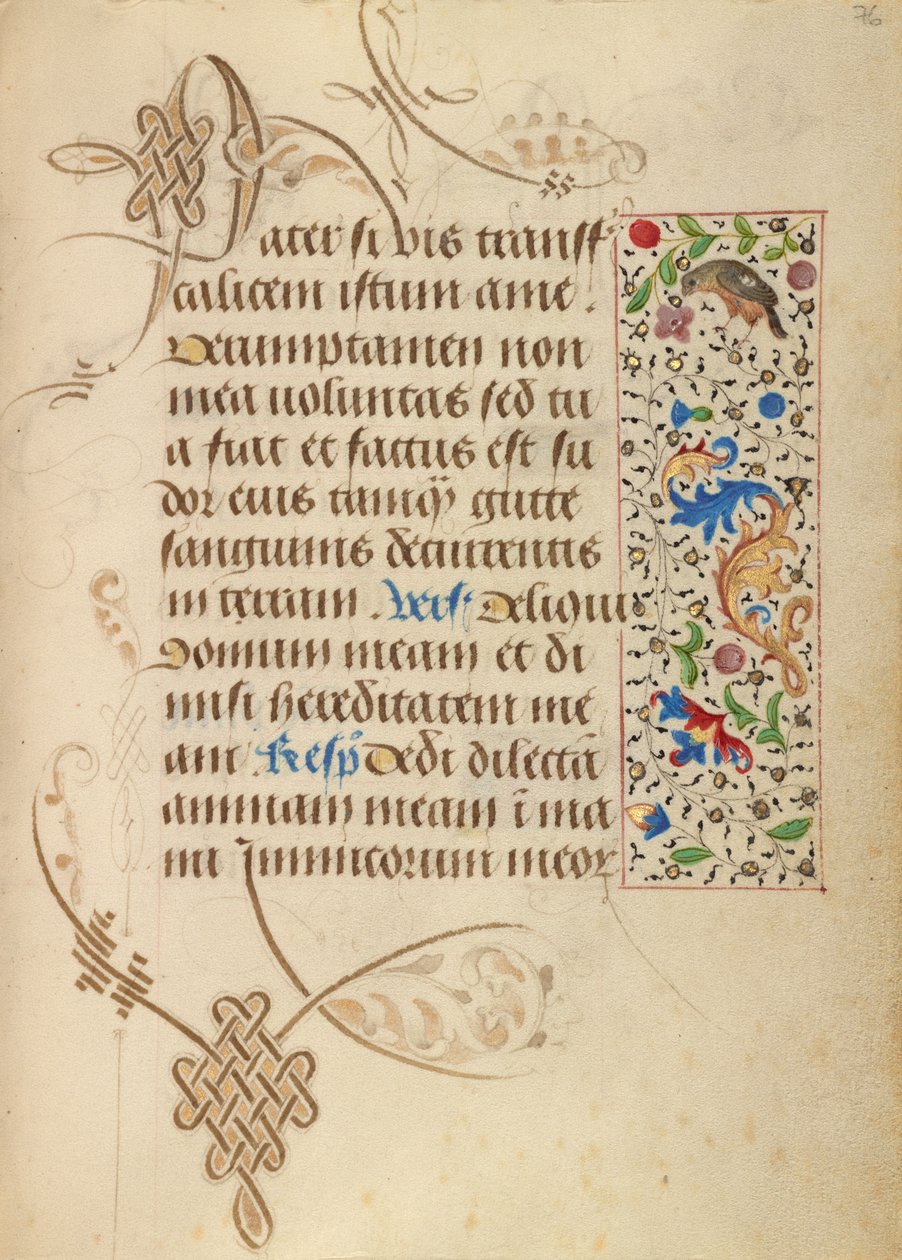 76
Pater si vis transf
calicem istum ame.
Verumptamen non
mea uoluntas sed tu
a fiat et factus est su
dor eius tamq̃ gutte
sanguinis decurrentis
in terram . Vers: Deliqui
Domum meam et di
misi hereditatem me
am Resp̃ Dedi dilectã
animam meam ĩ ma
nu Inimicorum meoꝝ